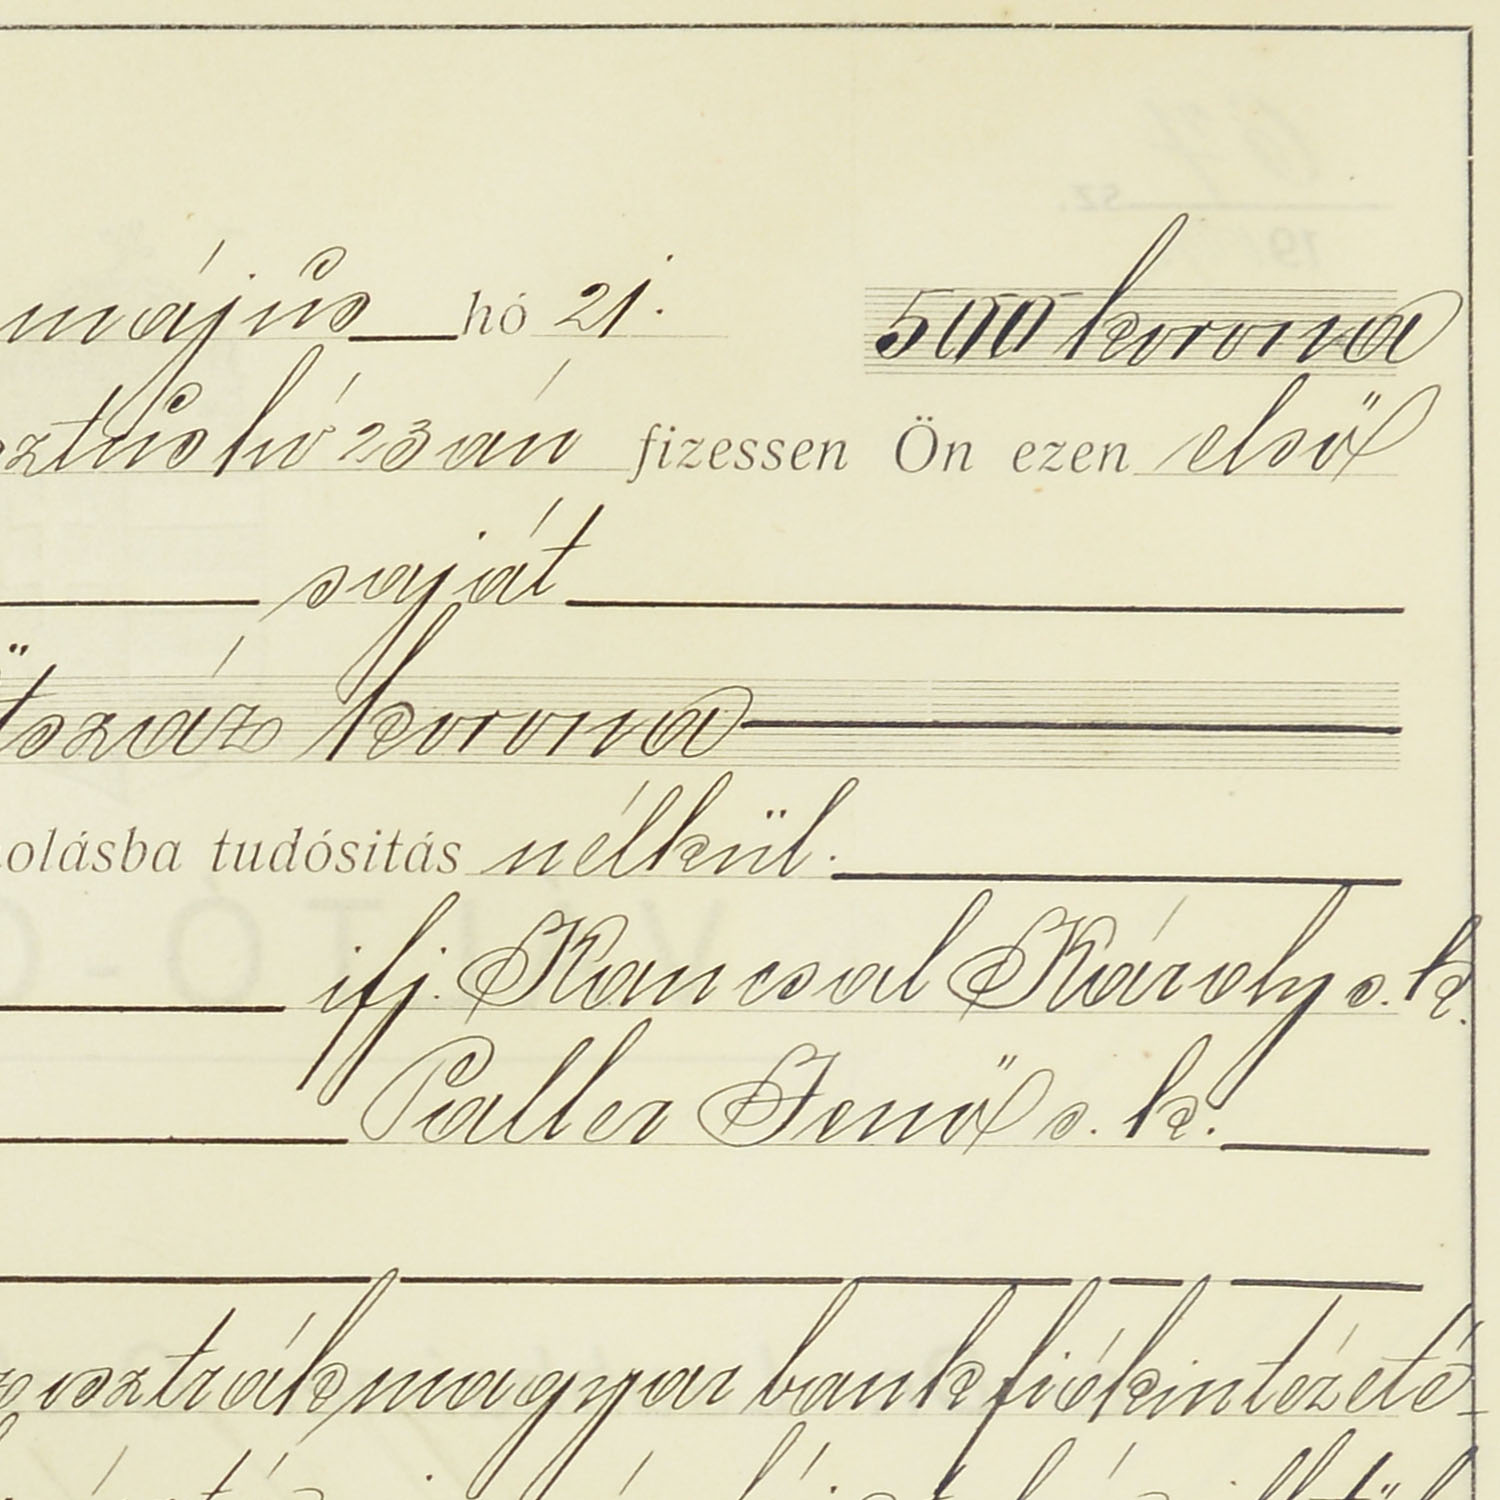 május hó 21. 500 korona
sztus hó 23 án fizessen Ön ezen első
saját
tszáz korona
olásba tudósitás nélkül.
ifj. Kancsal Károly s. k.
Paller Jenő s. k.
osztrák magyar bank fiókintézeté-